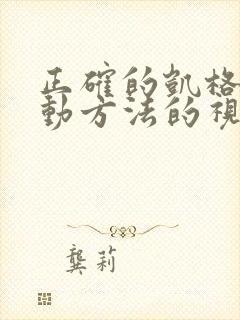 正確的凱格
動方法的視
龔莉